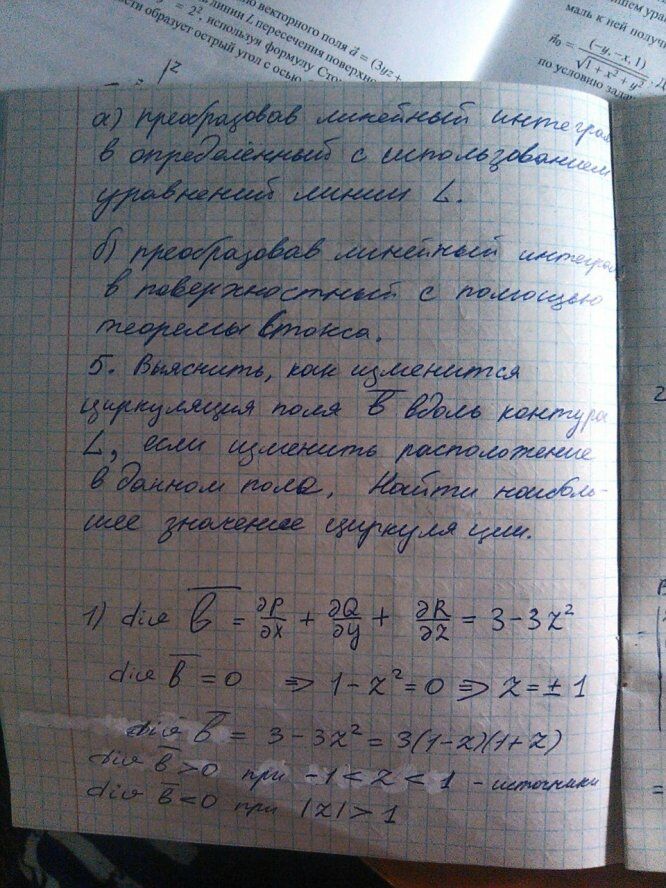 но векторного поля a⃗ = (3yz +
линии L пересечения поверхно
= 2², используя формулу Сто
сти образует острый угол с осью
маль к ней получ
n⃗₀ = (-y, -x, 1) / √(1 + x² + y²)
по условию зада
а) преобразовав линейный интеграл
в определённый с использованием
уравнений линии L.
б) преобразовав линейный интеграл
в поверхностный с помощью
теоремы Стокса.
5. Выяснить, как изменится
циркуляция поля b̅ вдоль контура
L, если изменить расположение
в данном поле. Найти наиболь-
шее значение циркуляции.
1) div b̅ = ∂P/∂x + ∂Q/∂y + ∂R/∂z = 3 - 3z²
div b̅ = 0 ⇒ 1 - z² = 0 ⇒ z = ± 1
div b̅ = 3 - 3z² = 3(1-z)(1+z)
div b̅ > 0 при -1 < z < 1 - источники
div b̅ < 0 при |z| > 1